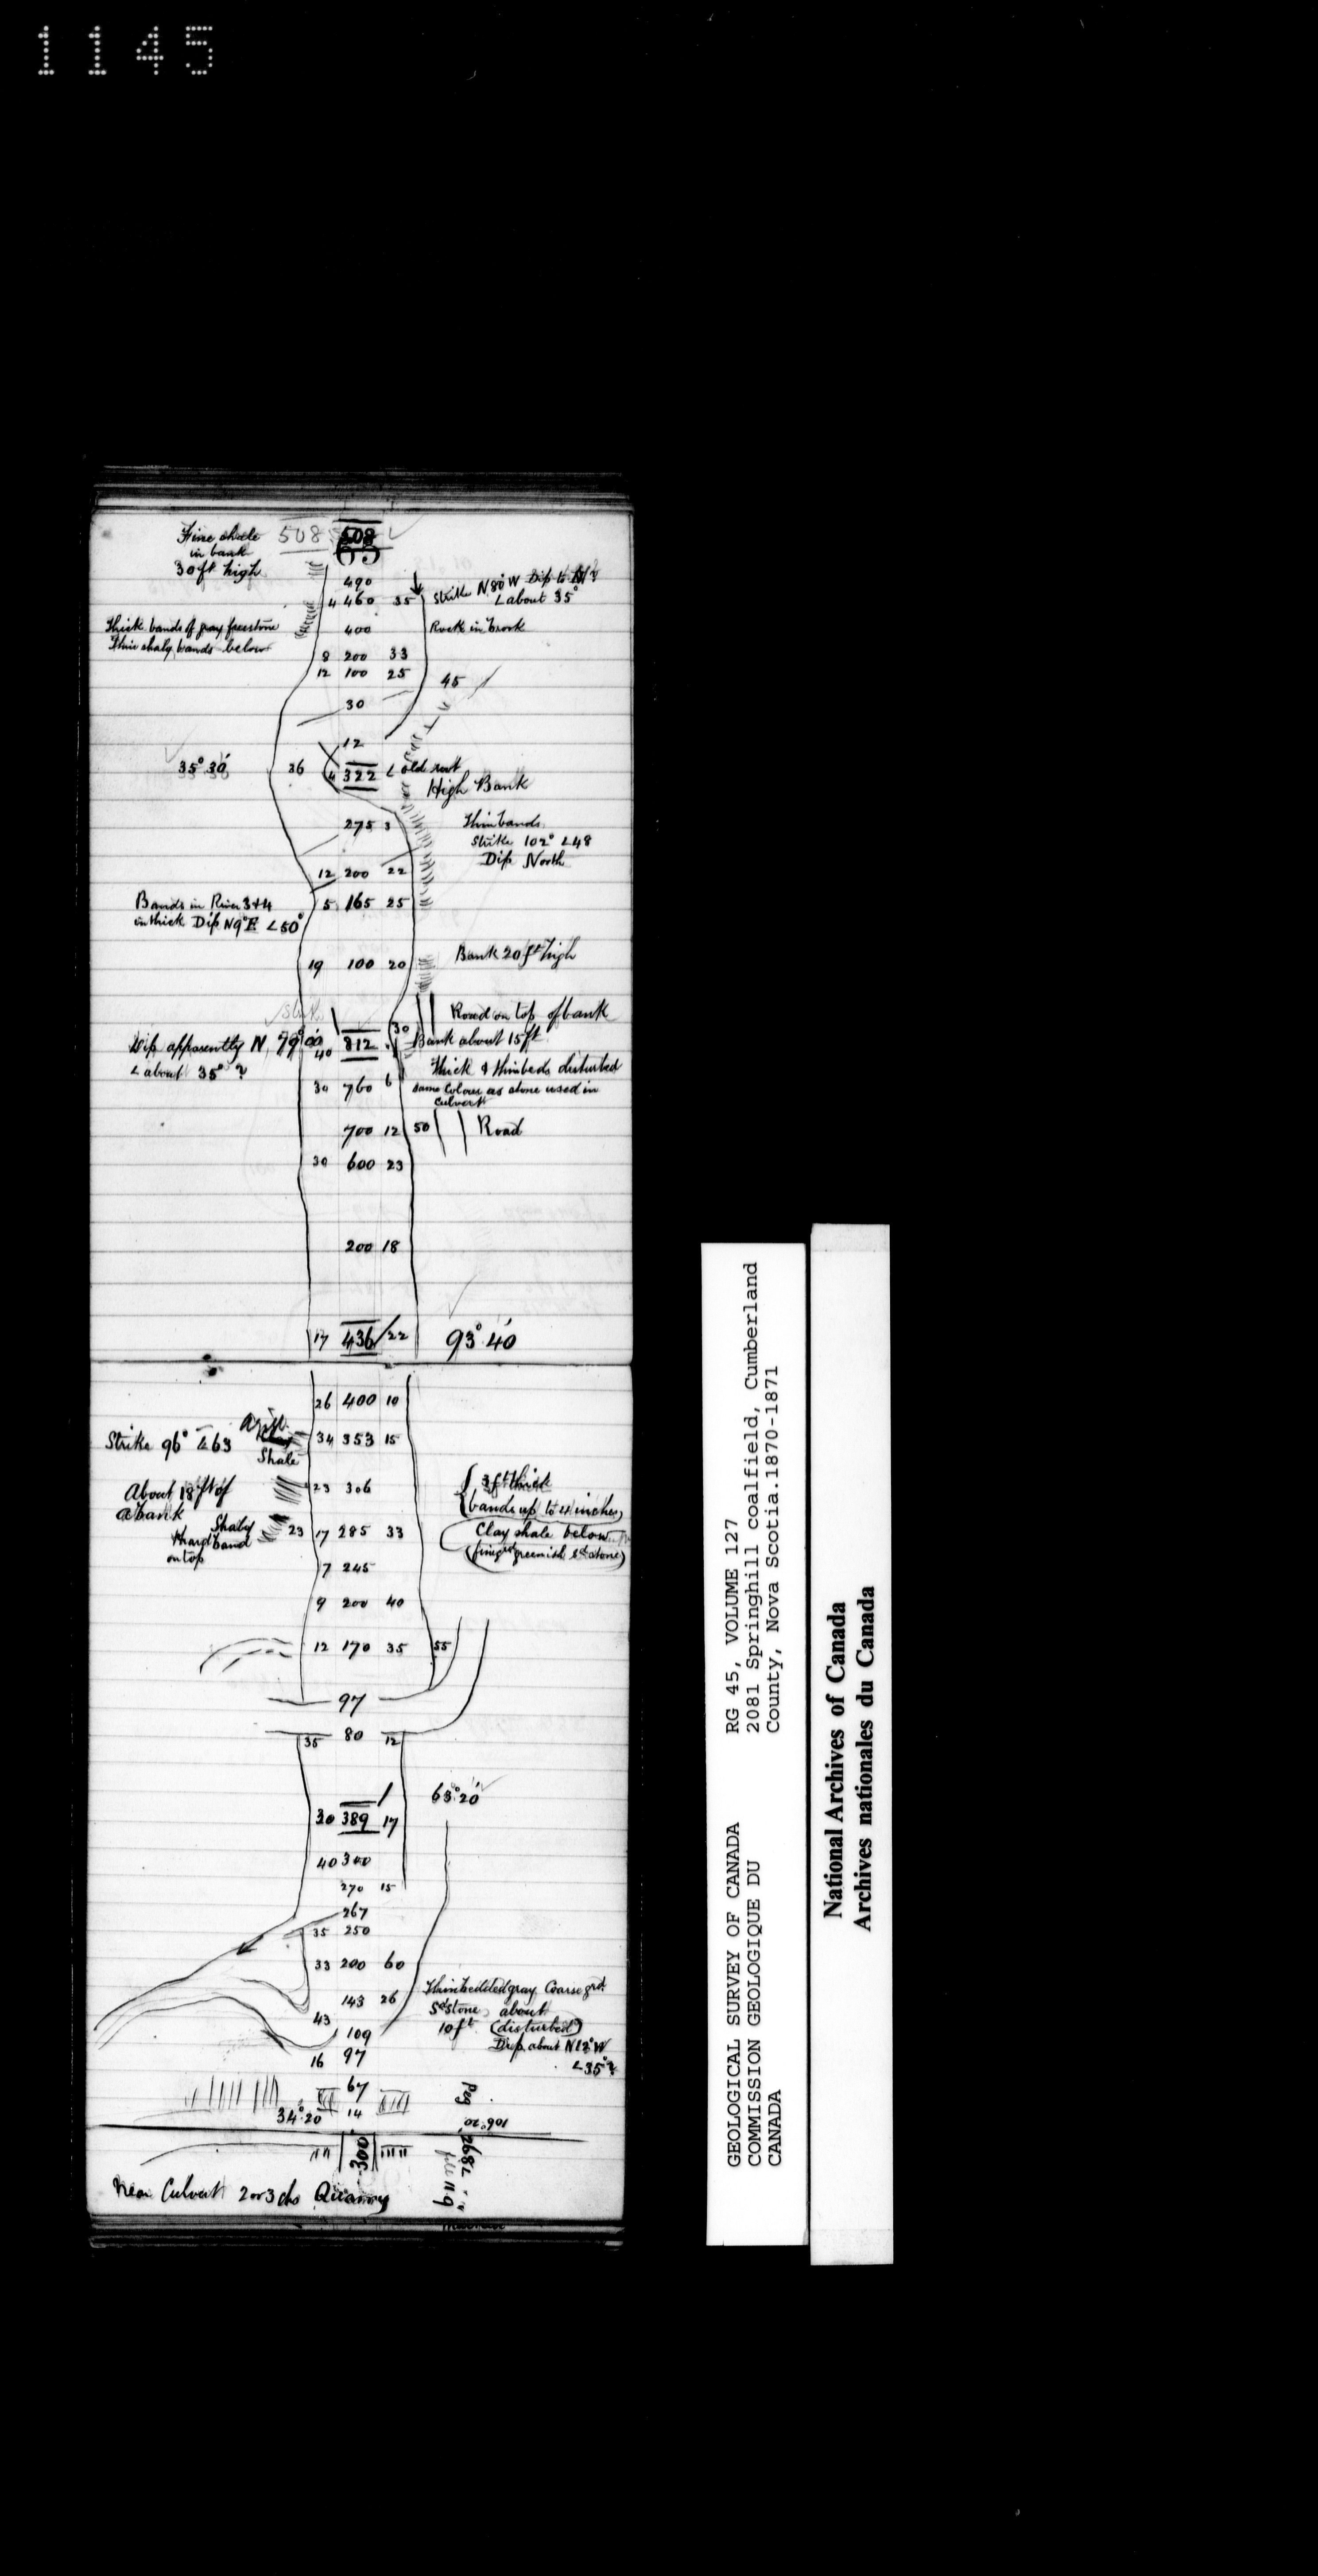 1145
Fine shale 508 508
in bank
30 ft high
490
4 460 35 Strike N 80° W Dip to N?
L about 35°
Thick bands of gray freestone 400 Rock in brook
Thin shaly bands below
8 200 33
12 100 25 45
30
12
35° 30' 36 4 322 L old root
High Bank
275 3 Thin bands
Strike 102° L 48
Dip North
12 200 22
Bands in River 3+4 5 165 25
in thick Dip N 9° E L 50°
19 100 20 Bank 20 ft high
Road on top of bank
30
Dip apparently N 79° 00' 40 812 Bank about 15 ft
L about 35° ? Thick & thin beds disturbed
30 760 6 same colour as stone used in
culvert
700 12 50 Road
30 600 23
200 18
17 436 22 93° 40'
26 400 10
Strike 96° L 63 34 353 15
Shale
About 18 ft of 23 306 3 ft thick
a bank bands up to 4 inches
Shaly 23 17 285 33 Clay shale below
Hard band
on top
7 245
9 200 40
12 170 35 55
97
35 80 12
63° 20'
30 389 17
40 300
270 15
267
35 250
33 200 60
143 26 Thin bedded gray Coarse grd
Sdstone about
43 10 ft (disturbed)
109 Dip about N 12° W
16 97 L 35° ?
67 Peg
34° 20 14 106° 20
300
Near Culvert 2 or 3 chs Quarry
GEOLOGICAL SURVEY OF CANADA RG 45, VOLUME 127
COMMISSION GEOLOGIQUE DU 2081 Springhill coalfield, Cumberland
CANADA County, Nova Scotia. 1870-1871
National Archives of Canada
Archives nationales du Canada